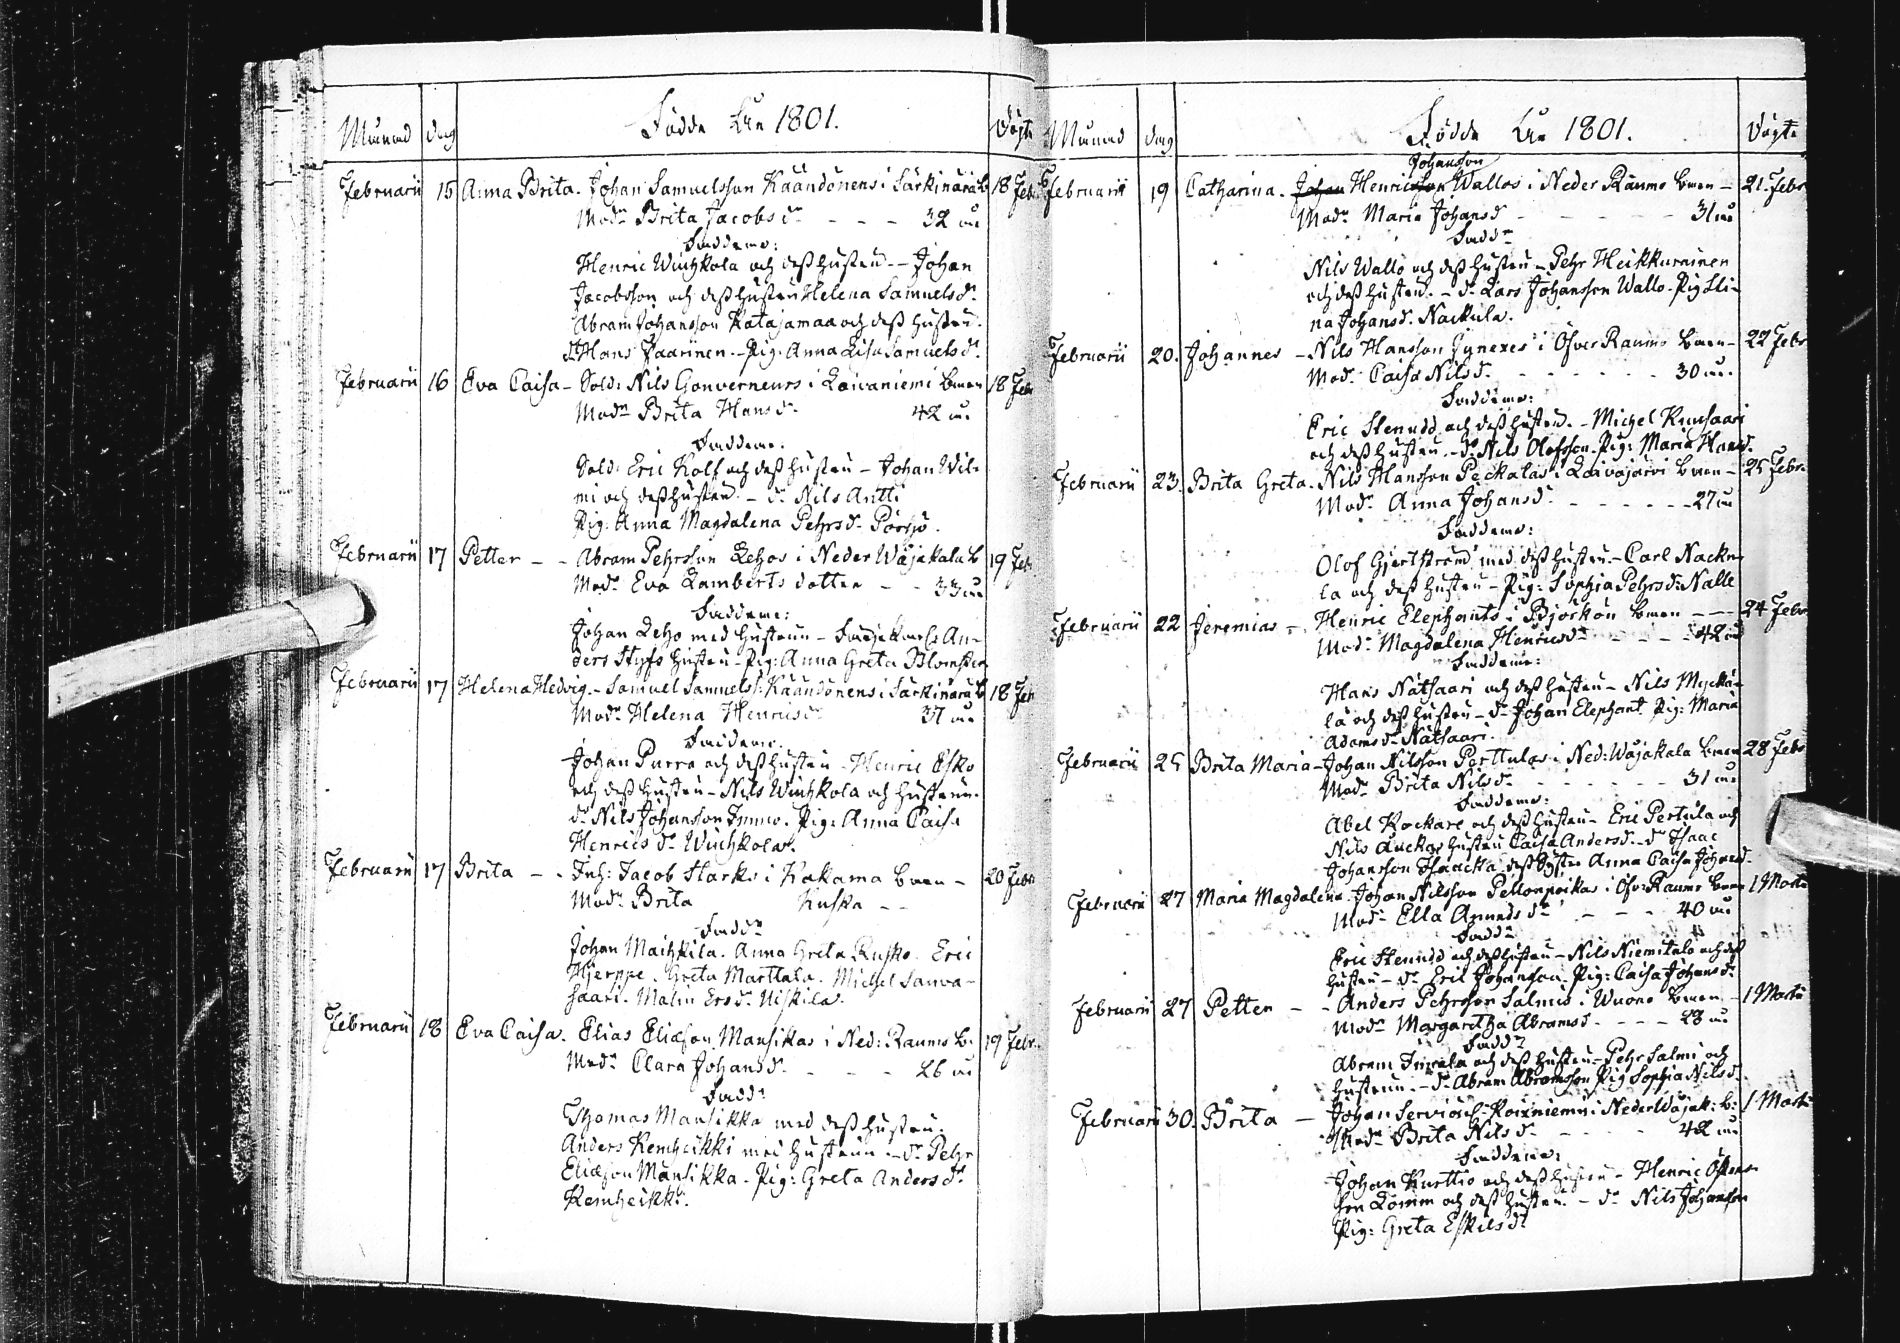 Månad dag Födde År 1801. Döpte
Februarii 15 Anna Brita. Johan Samuelsson Käändönens i Särkinärä b. 18 Febr.
Modr Brita Jacobs dr - - - 32 år
Faddrarne:
Henric Wuihkola och dess hustru - Johan
Jacobsson och dess hustru Helena Samuels dr.
Abram Johansson Katajamaa och dess hustru.
dr Hans Jaarinen. - Pig: Anna Lisa Samuels dr.
Februarii 16 Eva Caisa - Sold: Nils Gouverneurs i Laivaniemi by 18 Febr
Modr Brita Hans dr. 42 år.
Faddrarne:
Sold: Eric Kolf och dess hustru - Johan Wil-
mi och dess hustru - dr Nils Antti
Pig: Anna Magdalena Pehrs dr
Februarii 17 Petter - - Abram Pehrsson Lehos i Neder Wäjakala b 19 Feb.
Modr Eva Lamberts dotter - - 33 år
Faddrarne:
Johan Leho med hustrun - An-
ders Styfs hustru - Pig: Anna Greta Blomster
Februarii 17 Helena Hedvig. - Samuel Samuels: Käändönens i Särkinärä b 18 Feb
Modr Helena Henrics dr 37 år
Faddrarne.
Johan Purra och dess hustru - Henric Esko
och dess hustru - Nils Wuihkola och hustrun.
dr Nils Johansson Immo. Pig: Anna Caisa
Henrics dr Wuihkola.
Februarii 17 Brita - - Inh: Jacob Starks i Kakama by - 20 Febr
Modr Brita Kuska - -
Faddr
Johan Maihkila. Anna Greta Rusko. Eric
Hjerppe. Greta Marttala. Michel Sauva-
saari. Malin Ers dr Niskila.
Februarii 18 Eva Caisa. Elias Eliasson Mansikas i Ned: Raumo b. 19 Febr.
Modr Clara Johans dr. - - - 26 år
Faddr
Thomas Mansikka med dess hustru.
Anders Kemheikki med hustrun - dr Pehr
Eliasson Mansikka - Pig: Greta Anders dr
Kemheikki.
Månad dag Födde År 1801. Döpte
Johansson
Februarii 19 Catharina. Johan Henricsson Wallos i Neder Raumo by - 21. Febr
Modr Maria Johans dr - - - 31 år
Faddr
Nils Wallo och dess hustru - Pehr Heikkurainen
och dess hustru. - dr Lars Johansson Wallo - Pig Sti-
na Johans dr. Nackula.
Februarii 20. Johannes - Nils Hansson Gynexes i Öfver Raumo by - 22 Febr
Modr Caisa Nils dr. - - - 30 år.
Faddrarne:
Eric Stenudd och dess hustru. - Michel Kuusaari
och dess hustru. - dr Nils Olofsson - Pig: Maria Hans dr.
Februarii 23. Brita Greta. Nils Hansson Peckalas i Laivajärvi by - 25 Febr.
Modr Anna Johans dr - - - 27 år
Faddrarne:
Olof Hjertström med dess hustru - Carl Nacku-
la och dess hustru - Pig: Sophia Pehrs dr Nalle
Februarii 22 Jeremias - Henric Elephants i Björkön by - - - 24 Febr
Modr Magdalena Henrics dr - - - 42 år
Faddrarne:
Hans Nätsaari och dess hustru - Nils Myckä-
lä och dess hustru - dr Johan Elephant. Pig: Maria
Adams dr Nätsaari.
Februarii 25 Brita Maria - Johan Nilsson Perttulas i Ned: Wäjakala by 28 Febr
Modr Brita Nils dr. - - - 31 år
Faddrarne:
Abel Kockare och dess hustru - Eric Pertula och
Nils hustru Caisa Anders dr. - dr Isaac
Johansson Isaacka, dess Syster Anna Caisa Johans dr.
Februarii 27 Maria Magdalena. Johan Nilsson Pellonpoikas i Öfv: Raumo by 1 Martii
Modr Ella Amunds dr - - - 40 år
Faddr
Eric Stenudd och dess hustru - Nils Niemitalo och dess
hustru - dr Eric Johansson. Pig: Caisa Johans dr.
Februarii 27 Petter - - Anders Pehrsson Salmis i Wuono by - 1 Martii
Modr Margaretha Abrams dr. - - - 28 år
Faddr
Abram Imeala och dess hustru - Pehr Salmi och
hustrun. - dr Abram Abramsson Pig Sophia Nils dr
Februarii 30. Brita - Johan Koivniemi i Neder Wäjak: b: 1 Martii
Modr Brita Nils dr. - - - 42 år
Faddrarne:
Johan Kurttio och dess hustru - Henric
son och dess hustru. - dr Nils Johansson
Pig: Greta Eskils dr